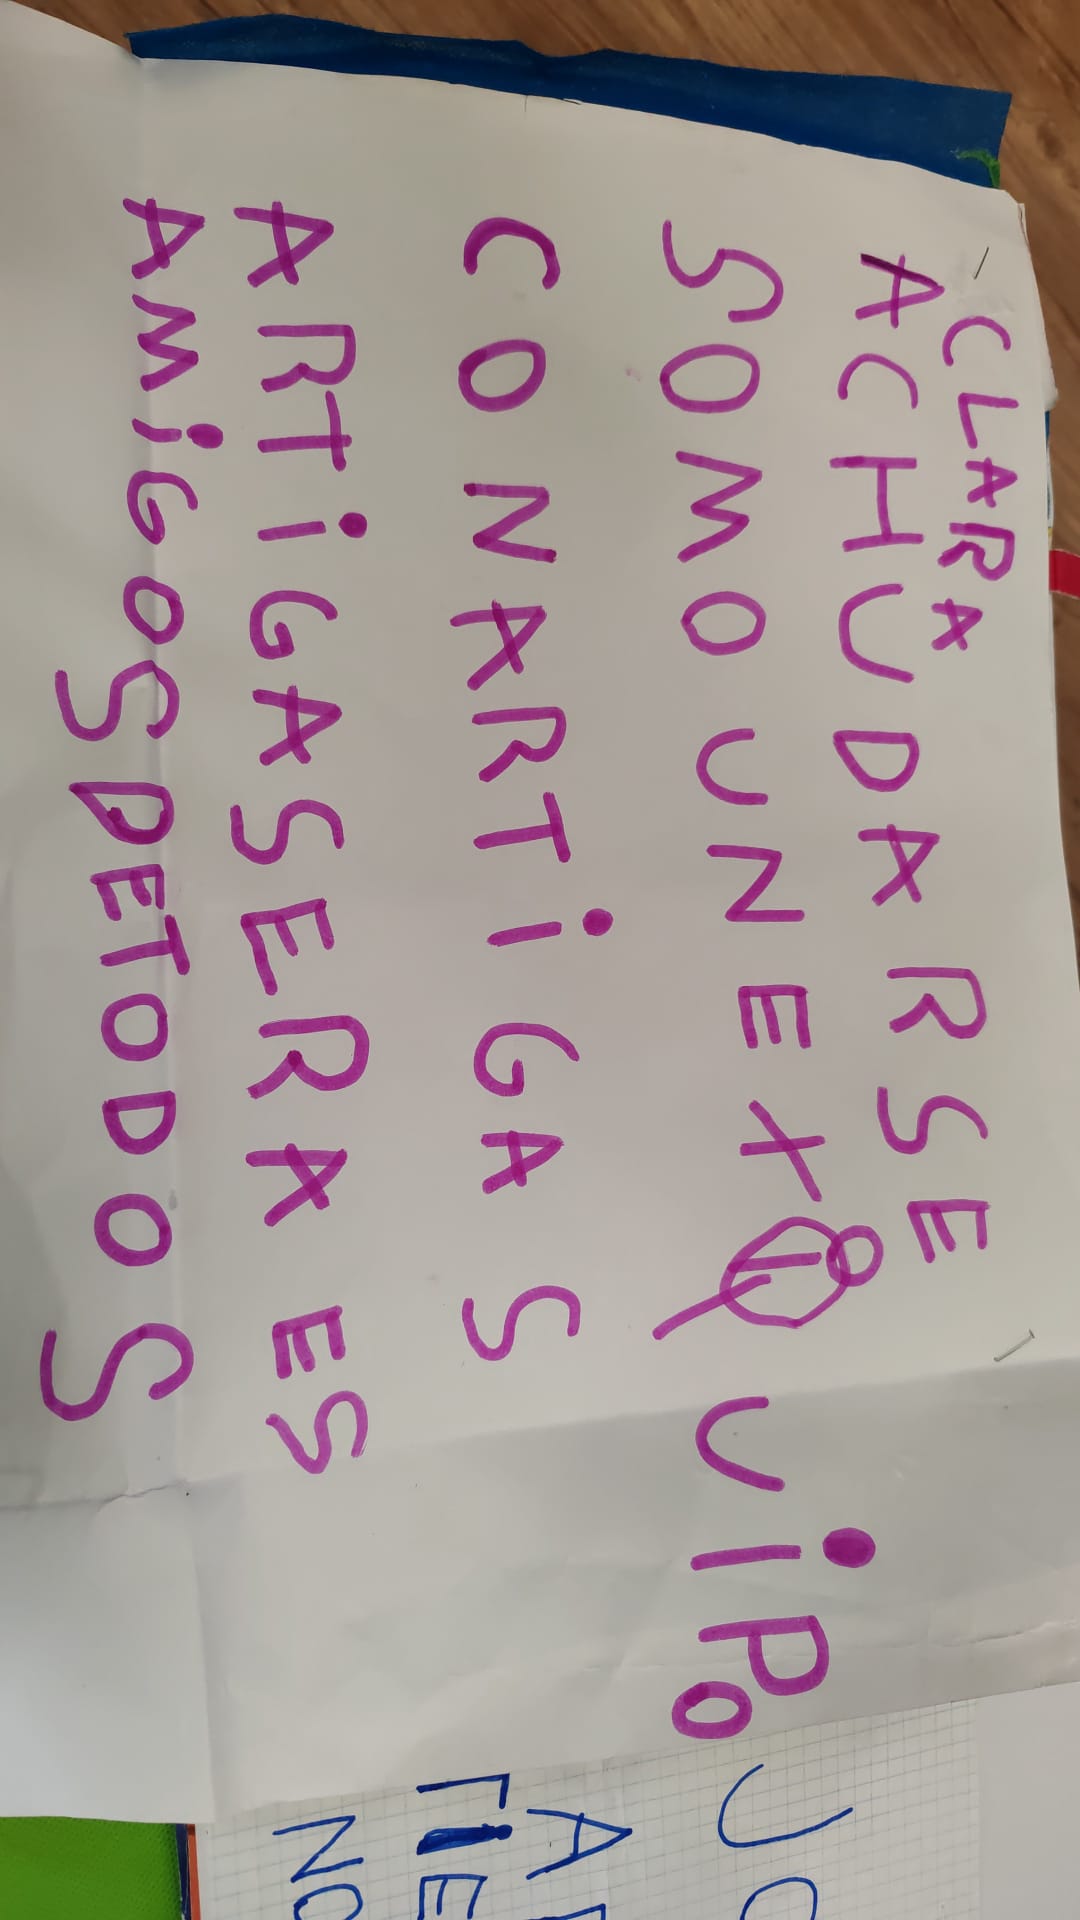 CLARA
ACHUDARSE
SOMO UN EXQUiPO
CONARTiGAS
ARTiGASERA ES
AMiGOSPETODOS